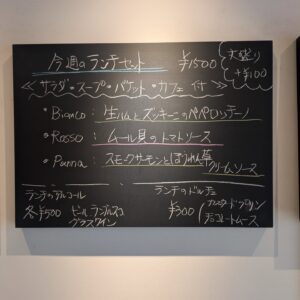 今週のランチセット ¥1500
大盛り
+¥100
≪サラダ・スープ・バケット・カフェ付≫
・Bianco: 生ハムとズッキーニのペペロンチーノ
・Rosso: ムール貝のトマトソース
・Panna: スモークサーモンとほうれん草
クリームソース
ランチのアルコール
各¥500 ビール ランブルスコ
グラスワイン
ランチのドルチェ
¥300
チョコレートムース